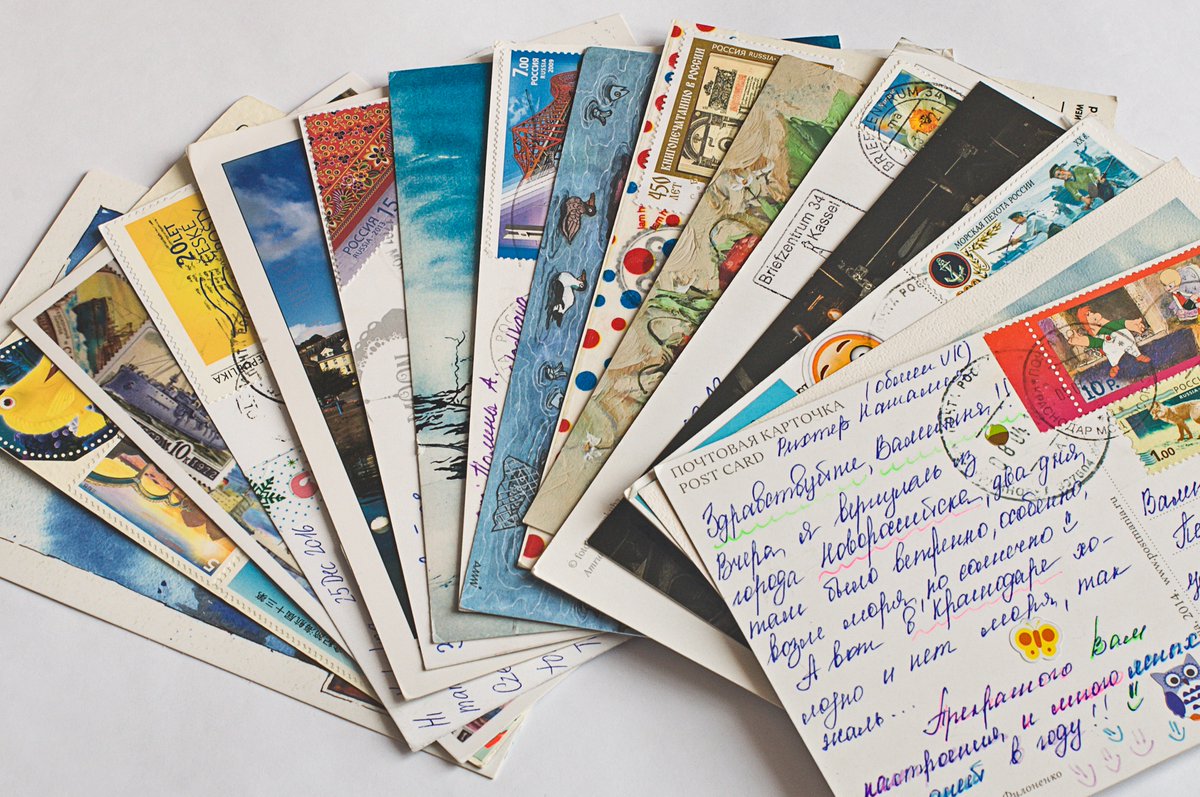 7.00
РОССИЯ
RUSSIA 2009
РОССИЯ RUSSIA
450 ЛЕТ
КНИГОПЕЧАТАНИЮ В РОССИИ
20 LET
ČESKÉ
РОССИЯ 15
RUSSIA 2013
BRIEFZENTRUM 34
Briefzentrum 34
Kassel
МОРСКАЯ ПЕХОТА РОССИИ
25 Dec 2016
Hi
ПОЧТОВАЯ КАРТОЧКА
POST CARD
(обмен VK)
Рихтер Наталия
Здравствуйте, Валентина!!
Вчера, я вернулась из
города Новороссийска, два дня,
там было ветренно, особенно,
возле моря, но солнечно
А вот в Краснодаре хо-
лодно и нет моря, так
жаль...
Прекрасного Вам
настроения, и много ясных
дней в году!!
10 Р.
РОССИЯ
1.00
www.postmania.ru
2014